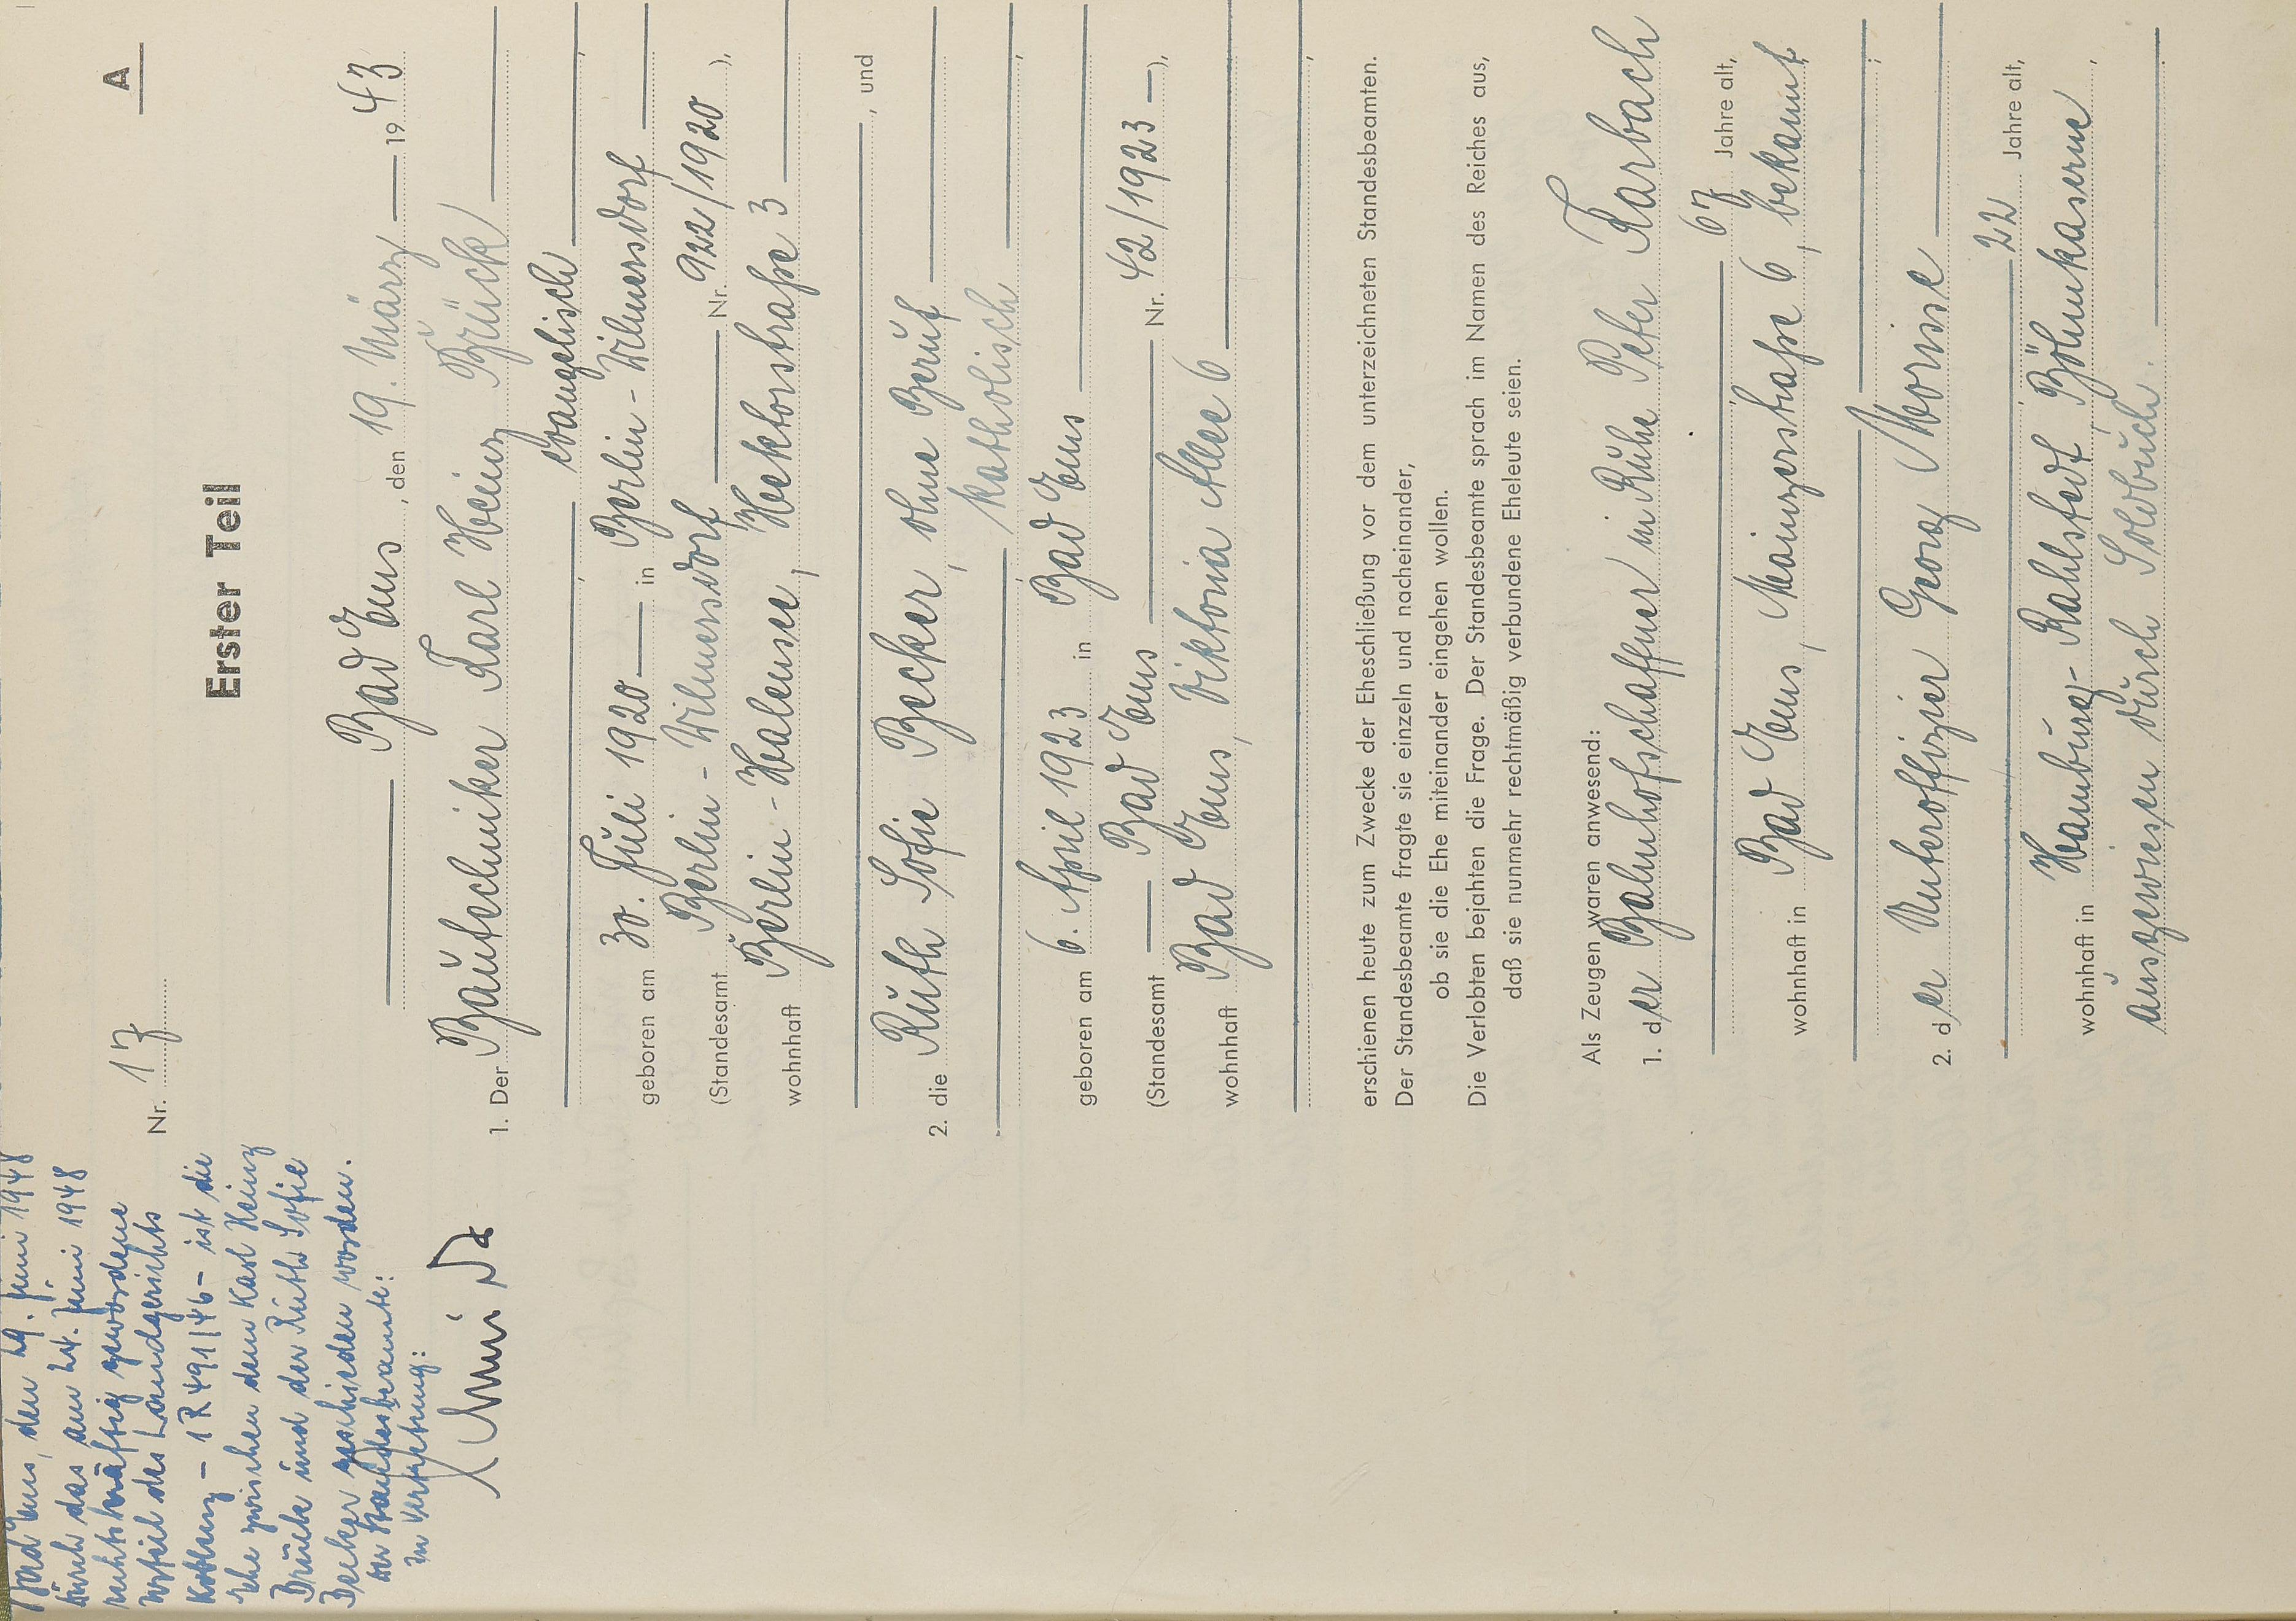 A
Nr. 17
Erster Teil
Bad Ems, den 19. März 1943
1. Der Bautechniker Karl Heinz Brück
, evangelisch,
geboren am 30. Juli 1920 in Berlin-Wilmersdorf
(Standesamt Berlin-Wilmersdorf Nr. 922/1920),
wohnhaft Berlin-Halensee, Hektorstraße 3
, und
2. die Ruth Sofie Becker, ohne Beruf
, katholisch,
geboren am 6. April 1923 in Bad Ems
(Standesamt Bad Ems Nr. 42/1923),
wohnhaft Bad Ems, Viktoria Allee 6
,
erschienen heute zum Zwecke der Eheschließung vor dem unterzeichneten Standesbeamten.
Der Standesbeamte fragte sie einzeln und nacheinander,
ob sie die Ehe miteinander eingehen wollen.
Die Verlobten bejahten die Frage. Der Standesbeamte sprach im Namen des Reiches aus,
daß sie nunmehr rechtmäßig verbundene Eheleute seien.
Als Zeugen waren anwesend:
1. der Bahnhofschaffner in Ruhe Peter Karbach
67 Jahre alt,
wohnhaft in Bad Ems, Mainzerstraße 6, bekannt
;
2. der Unteroffizier Georg
22 Jahre alt,
wohnhaft in Hamburg-Rahlstedt, Böhnkaserne,
ausgewiesen durch Soldbuch.
Bad Ems, den 29. Juni 1948
Durch das am 24. Juni 1948
rechtskräftig gewordene
Urteil des Landgerichts
Koblenz - 1 R 491/46 - ist die
Ehe zwischen dem Karl Heinz
Brück und der Ruth Sofie
Becker geschieden worden.
Der Standesbeamte:
In Vertretung: